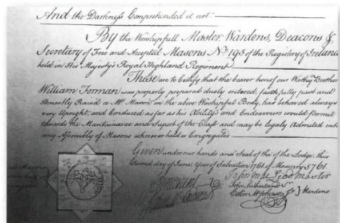 And the Darkness Comprehended it not.
By the Worshipfull Master Wardens, Deacons &
Secretary of Free and Accepted Masons No 195 of the Registry of Ireland
held in His Majesty's Royal Highland Regiment
These are to Certify that the bearer hereof our Worthy Brother
William Forman was properly prepared duely entered, faithfully past and
Raised a Mr Mason in the above Worshipfull Body, has behaved always
very Upright, and conduced as far as his Ability's and Endeavours would Permit
towards the Maintainance and Support of the Craft and may be legaly Admitted into
any Assembly of Masons wherever held or Congregated
Given under our hands and Seal of the of the Lodge, this
Second day of June, Year of Salvation 1761 & Masonry 5761
John Master
Secretary
John
Wardens